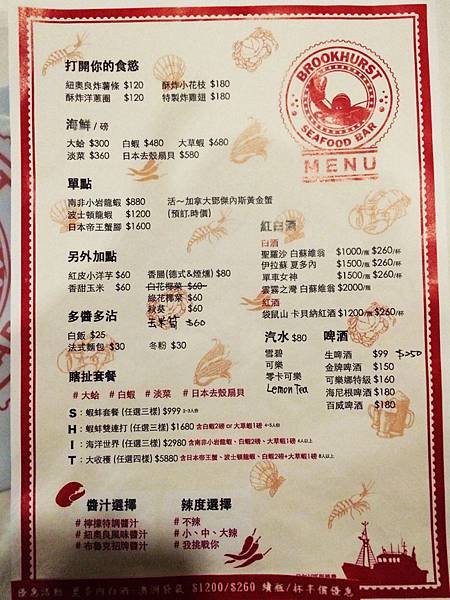 BROOKHURST
SEAFOOD BAR
MENU
打開你的食慾
紐奧良炸薯條 $120 酥炸小花枝 $180
酥炸洋蔥圈 $120 特製炸雞翅 $180
海鮮/磅
大蛤 $300 白蝦 $480 大草蝦 $680
淡菜 $360 日本去殼扇貝 $580
單點
南非小岩龍蝦 $880 活~加拿大鄧傑內斯黃金蟹
波士頓龍蝦 $1200 (預訂.時價)
日本帝王蟹腳 $1600
另外加點
紅皮小洋芋 $60 香腸(德式&煙燻) $80
香甜玉米 $60 白花椰菜 $60
綠花椰菜 $60
秋葵 $60
玉米筍 $60
多醬多沾
白飯 $25
法式麵包 $30 冬粉 $30
紅白酒
白酒
聖羅沙 白蘇維翁 $1000/瓶 $260/杯
伊拉蘇 夏多內 $1500/瓶 $260/杯
單車女神 $1500/瓶 $260/杯
雲霧之灣 白蘇維翁 $2000/瓶
紅酒
袋鼠山 卡貝納紅酒 $1200/瓶 $260/杯
汽水 $80
雪碧
可樂
零卡可樂
Lemon Tea
啤酒
生啤酒 $99 $250
金牌啤酒 $150
可樂娜特級 $160
海尼根啤酒 $180
百威啤酒 $180
瞎扯套餐
# 大蛤 # 白蝦 # 淡菜 # 日本去殼扇貝
S:蝦蚌套餐 (任選三樣) $999 2-3人份
H:蝦蚌雙連打 (任選三樣) $1680 含白蝦2磅 or 大草蝦1磅 4-5人份
I:海洋世界 (任選三樣) $2980 含南非小岩龍蝦、白蝦2磅、大草蝦1磅 6人以上
T:大收穫 (任選四樣) $5880 含日本帝王蟹、波士頓龍蝦、白蝦2磅+大草蝦1磅 8人以上
醬汁選擇
# 檸檬特調醬汁
# 紐奧良風味醬汁
# 布魯克招牌醬汁
辣度選擇
# 不辣
# 小、中、大辣
# 我挑戰你
優惠活動 $1200/$260 續瓶/杯半價優惠